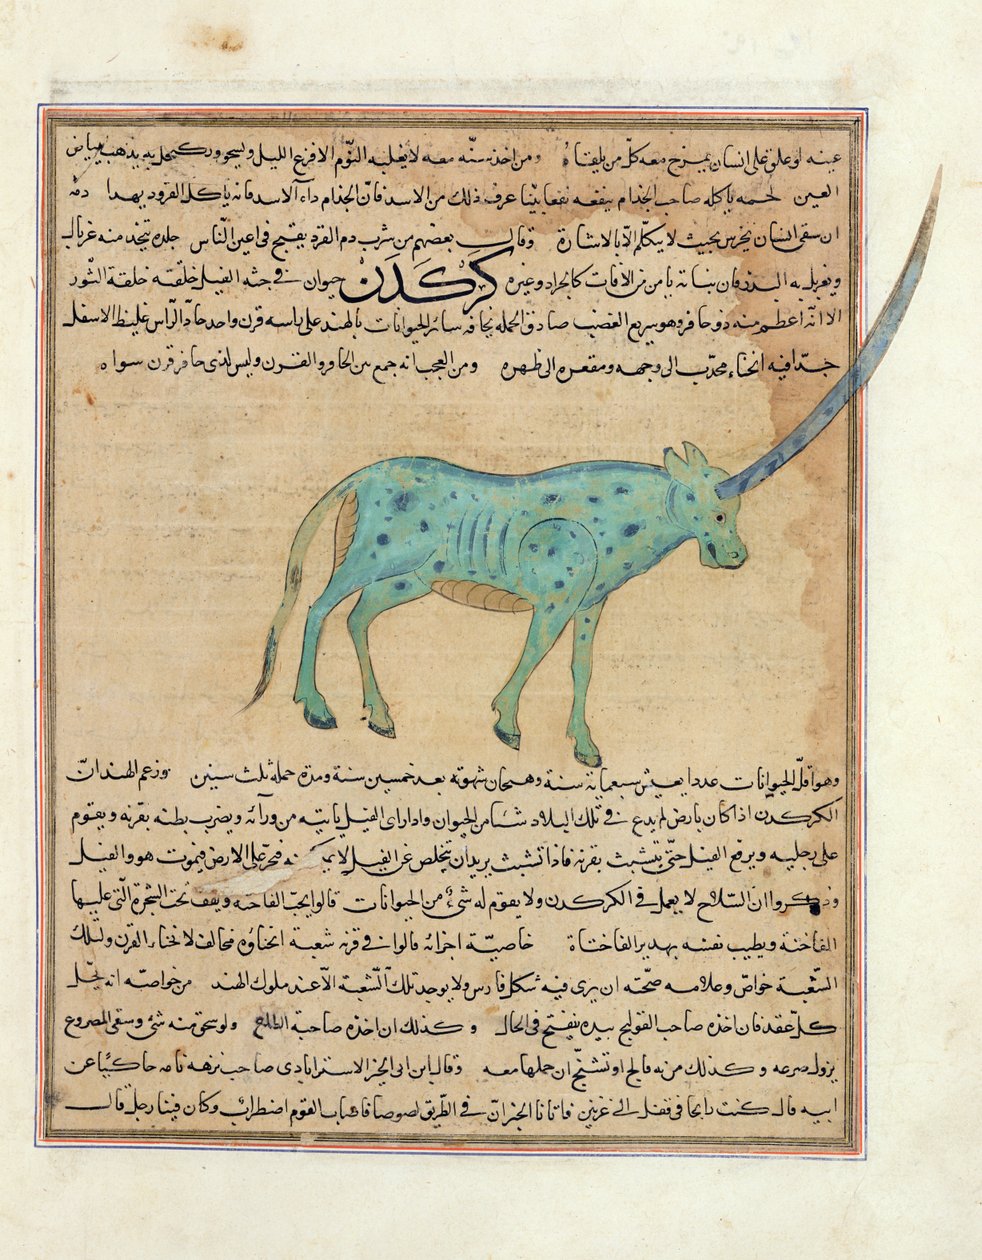 عينه او علق على انسان يمزح معه كل من يلقاه ومن اخذ سنه معه لا يغلبه النوم الا فزع الليل ولسحوور كتحل به يذهب بياض
العين لحمه ياكله صاحب الجذام ينفعه نفعا بيّنا عرف ذلك من الاسد فان الجذام داء الاسد فانه ياكل القرود بهدا دمه
ان سقى انسان يخرس بحيث لا يتكلّم الا بالاشارة وقال بعضهم من شرب دم القرد يقبح فى اعين الناس جلده يتخذ منه غربال
ويغربل به البذر فان نباته يامن من الافات كالجراد وغيره كَرْكَدَّنْ حيوان فى جثه الفيل خلقته خلقة الثور
الا انّه اعظم منه ذو حافر وهو سريع الغضب صادق الحمله يخافه سائر الحيوانات بالهند على راسه قرن واحد حادّ الراس غليظ الاسفل
جدّا فيه انحناء محدّب الى وجهه ومقعره الى ظهره ومن العجب انه جمع بين الحافر والقرن وليس لذى حافر قرن سواه
وهو اقلّ الحيوانات عددا يعيش سبعمائة سنة وهيجان شهوته بعد خمسين سنة ومدة حمله ثلث سنين وزعم الهند انّ
الكركدن اذا كان بارض لم يدع فى تلك البلاد شيئا من الحيوان واذا راى الفيل ياتيه من ورائه ويضرب بطنه بقرنه ويقوم
على رجليه ويرفع الفيل حتى يتشبث بقرنه فاذا تشبث يريد ان يتخلص عن الفيل لا يمكنه فيخر على الارض فيموت هو والفيل
وذكروا ان السّلاح لا يعمل فى الكركدن ولا يقوم له شئ من الحيوانات قالوا يحب الفاخته ويقف تحت الشجرة الّتى عليها
الفاختة ويطيب نفسه بهدير الفاختاة خاصيّة اجزائه قالوا فى قرنه شعبة انحناؤه مخالف لانحناء القرن ولتلك
الشعبة خواصّ وعلامه صحّته ان يرى فيه شكل فارس ولا يوجد تلك الشعبة الّا عند ملوك الهند من خواصّه انه يحلّ
كلّ عقد فان اخذه صاحب القولنج بيده ينفتح فى الحال وكذلك ان اخذه صاحبة الطلق ولو سحق منه شئ وسقى المصروع
يزول صرعه وكذلك من به فالج او تشنّج ان حملها معه وقال ابن ابى الخير الاسترابادى صاحب نزهه نامه حاكيا عن
ابيه قال كنت رايحا فى قفل الى غزنين فاتانا الخبر انّ فى الطّريق لصوصا فاصاب القوم اضطراب وكان فينا رجل قال